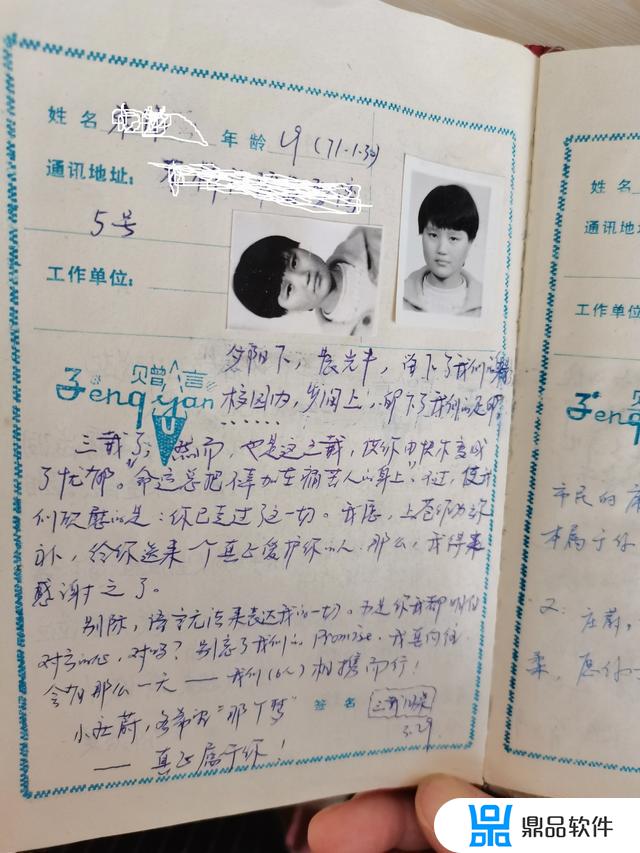 姓名
年龄 19 (71-1-30)
通讯地址:
5号
工作单位:
赠言
Zeng yan
夕阳下,晨光中,留下了我们的
校园内,步阅上,印下了我们的足印
......
三载了,然而,也是这三载,使你由快乐变成
了忧郁。"命运总把不幸加在痛苦人的身上",不过,使我
们欣慰的是:你已走过了这一切。我愿,上苍能为你
补,给你送来一个真正爱护你的人,那么,我得来
感谢之了。
别际,语言无法来表达我的一切。可是你我都明白
对方的心,对吗?别忘了我们的 Promise,我真向往
会有那么一天——我们(6人)相携而行!
小庄蔚,多希望"那个梦"
——真正属于你!
签名 三载同窗
3.29
姓名
通讯地
工作单
Zeng
市民的
本属于你
又:庄蔚,
柔,愿你
鼎品软件